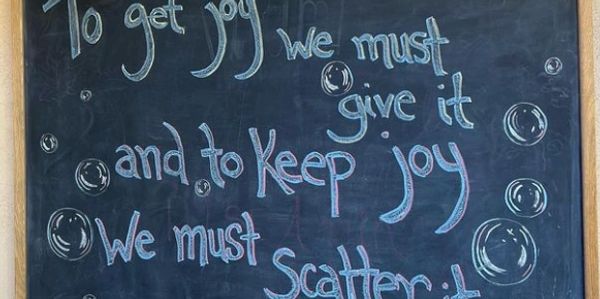 To get joy
we must
give it
and to Keep joy
We must
Scatter it